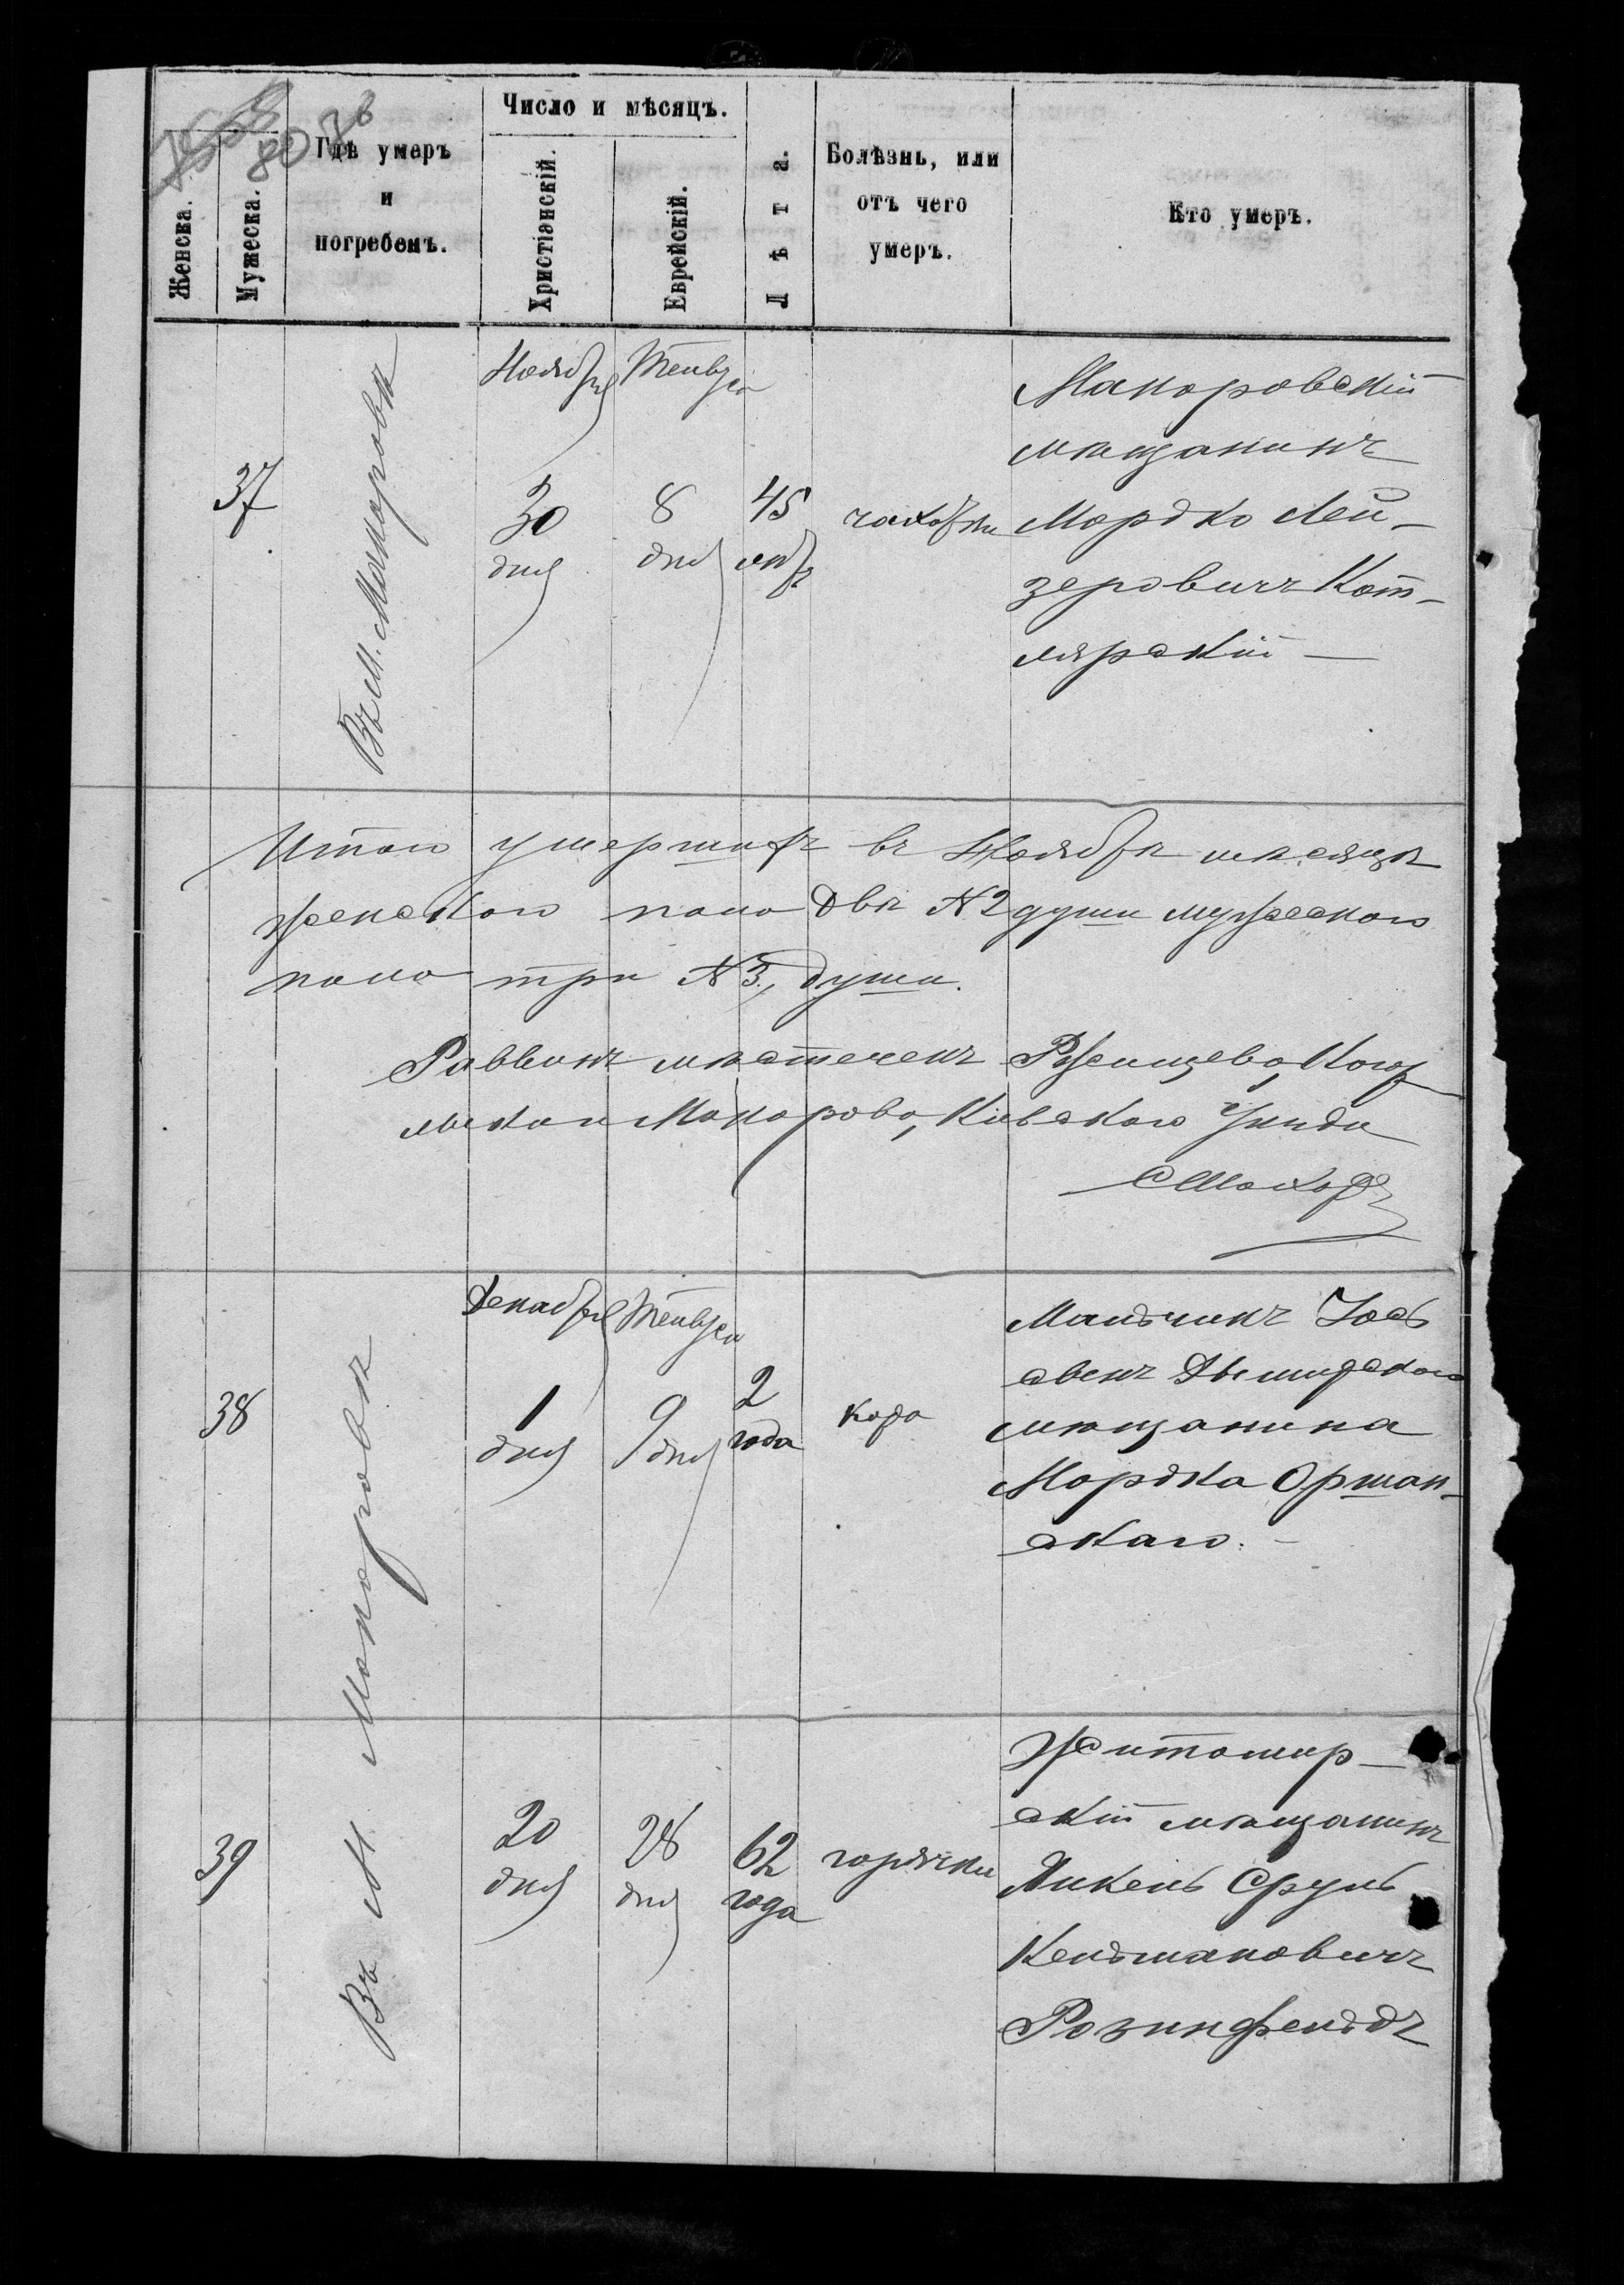 80 38
Женска.
Мужеска.
Гдѣ умеръ
и
погребенъ.
Число и мѣсяцъ.
Христіанскій.
Еврейскій.
Лѣта.
Болѣзнь, или
отъ чего
умеръ.
Кто умеръ.
37
Въ М. Макаровѣ
Ноября
30
дня
Тейвуса
8
дня
45
лѣтъ
чахотки
Макаровскій
мѣщанинъ
Мордко Лей-
зеровичъ Кот-
лярскій —
Итого умершихъ въ Ноябрѣ мѣсяцѣ
женскаго пола двѣ № 2 души мужескаго
пола три № 3, души.
Раввинъ мѣстечекъ Ржищева,
Макарова, Кіевскаго Уѣзда
38
Въ М Макаровѣ
Декабря
1
дня
Тейвуса
9
дня
2
года
кора
Мальчикъ Іось
Мѣщанина
Мордка Оршан-
скаго. —
39
20
дня
28
дня
62
года
горячки
Житомир-
скій мѣщанинъ
Сруль
Кельмановичъ
Розинфельдъ